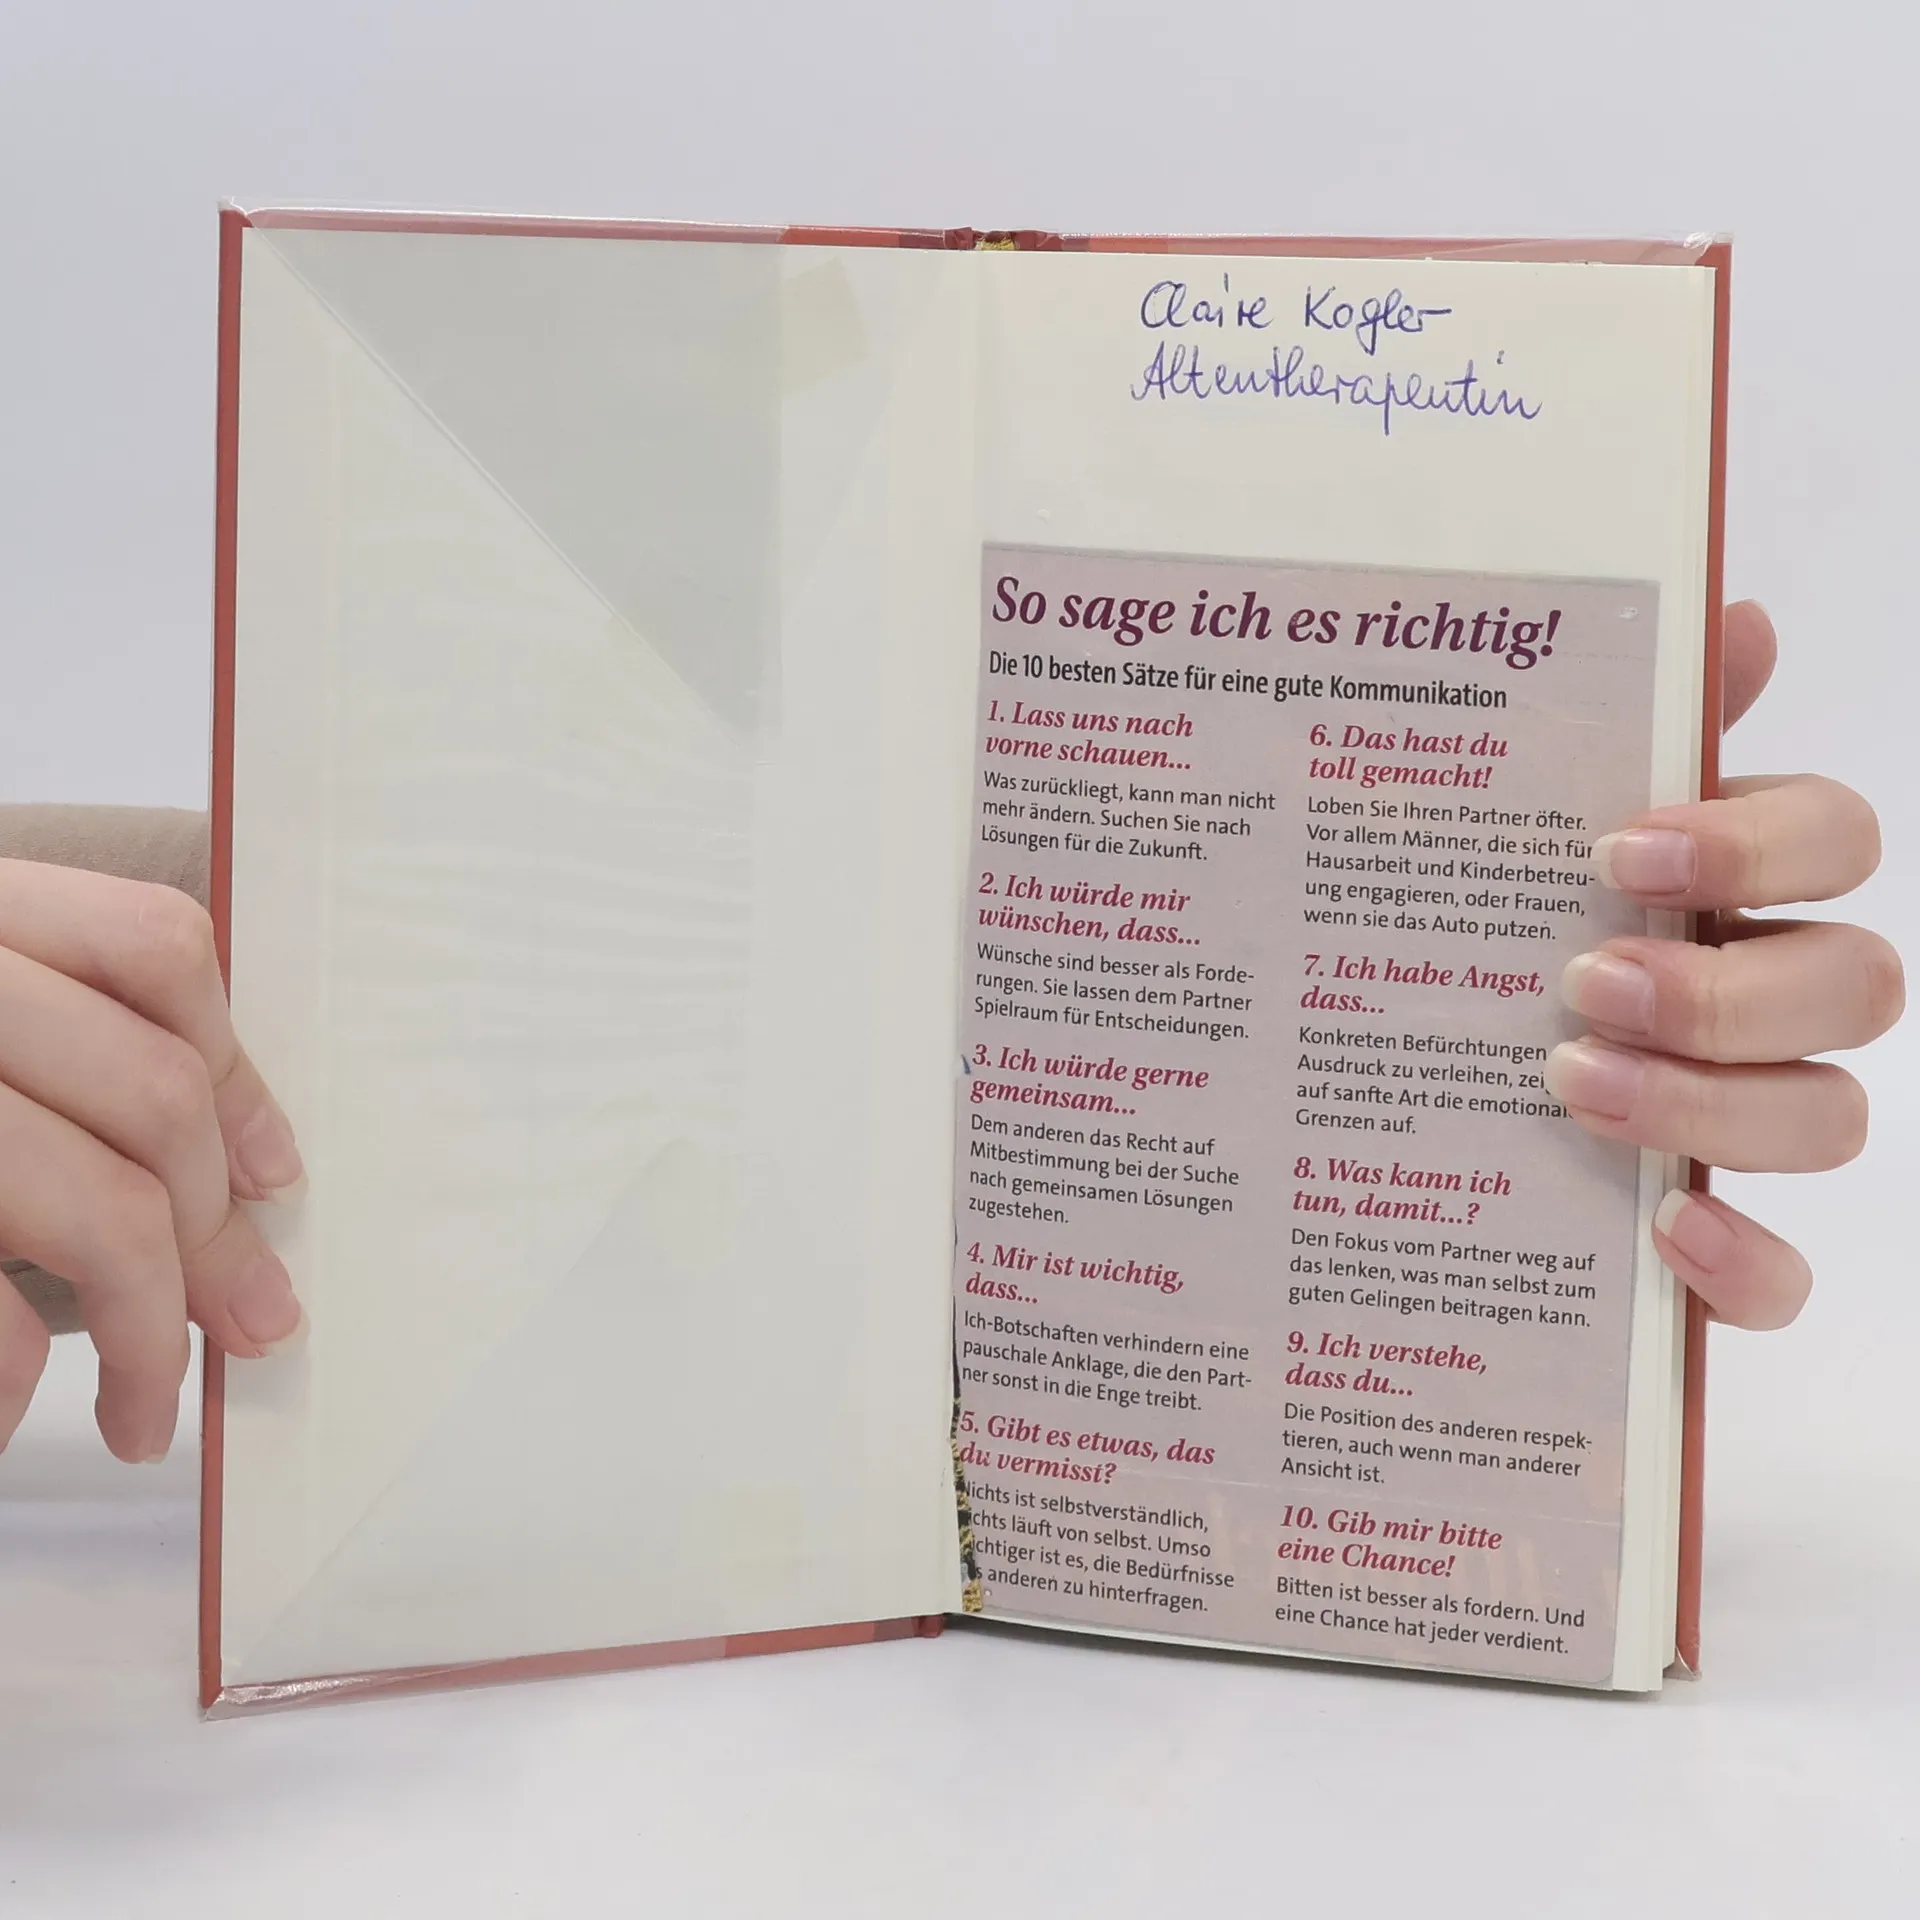 Claire Kogler
Altentherapeutin
So sage ich es richtig!
Die 10 besten Sätze für eine gute Kommunikation
1. Lass uns nach
vorne schauen...
Was zurückliegt, kann man nicht
mehr ändern. Suchen Sie nach
Lösungen für die Zukunft.
2. Ich würde mir
wünschen, dass...
Wünsche sind besser als Forde-
rungen. Sie lassen dem Partner
Spielraum für Entscheidungen.
3. Ich würde gerne
gemeinsam...
Dem anderen das Recht auf
Mitbestimmung bei der Suche
nach gemeinsamen Lösungen
zugestehen.
4. Mir ist wichtig,
dass...
Ich-Botschaften verhindern eine
pauschale Anklage, die den Part-
ner sonst in die Enge treibt.
5. Gibt es etwas, das
du vermisst?
Nichts ist selbstverständlich,
läuft von selbst. Umso
ist es, die Bedürfnisse
anderen zu hinterfragen.
6. Das hast du
toll gemacht!
Loben Sie Ihren Partner öfter.
Vor allem Männer, die sich für
Hausarbeit und Kinderbetreu-
ung engagieren, oder Frauen,
wenn sie das Auto putzen.
7. Ich habe Angst,
dass...
Konkreten Befürchtungen
Ausdruck zu verleihen,
auf sanfte Art die
Grenzen auf.
8. Was kann ich
tun, damit...?
Den Fokus vom Partner weg auf
das lenken, was man selbst zum
guten Gelingen beitragen kann.
9. Ich verstehe,
dass du...
Die Position des anderen respek-
tieren, auch wenn man anderer
Ansicht ist.
10. Gib mir bitte
eine Chance!
Bitten ist besser als fordern. Und
eine Chance hat jeder verdient.